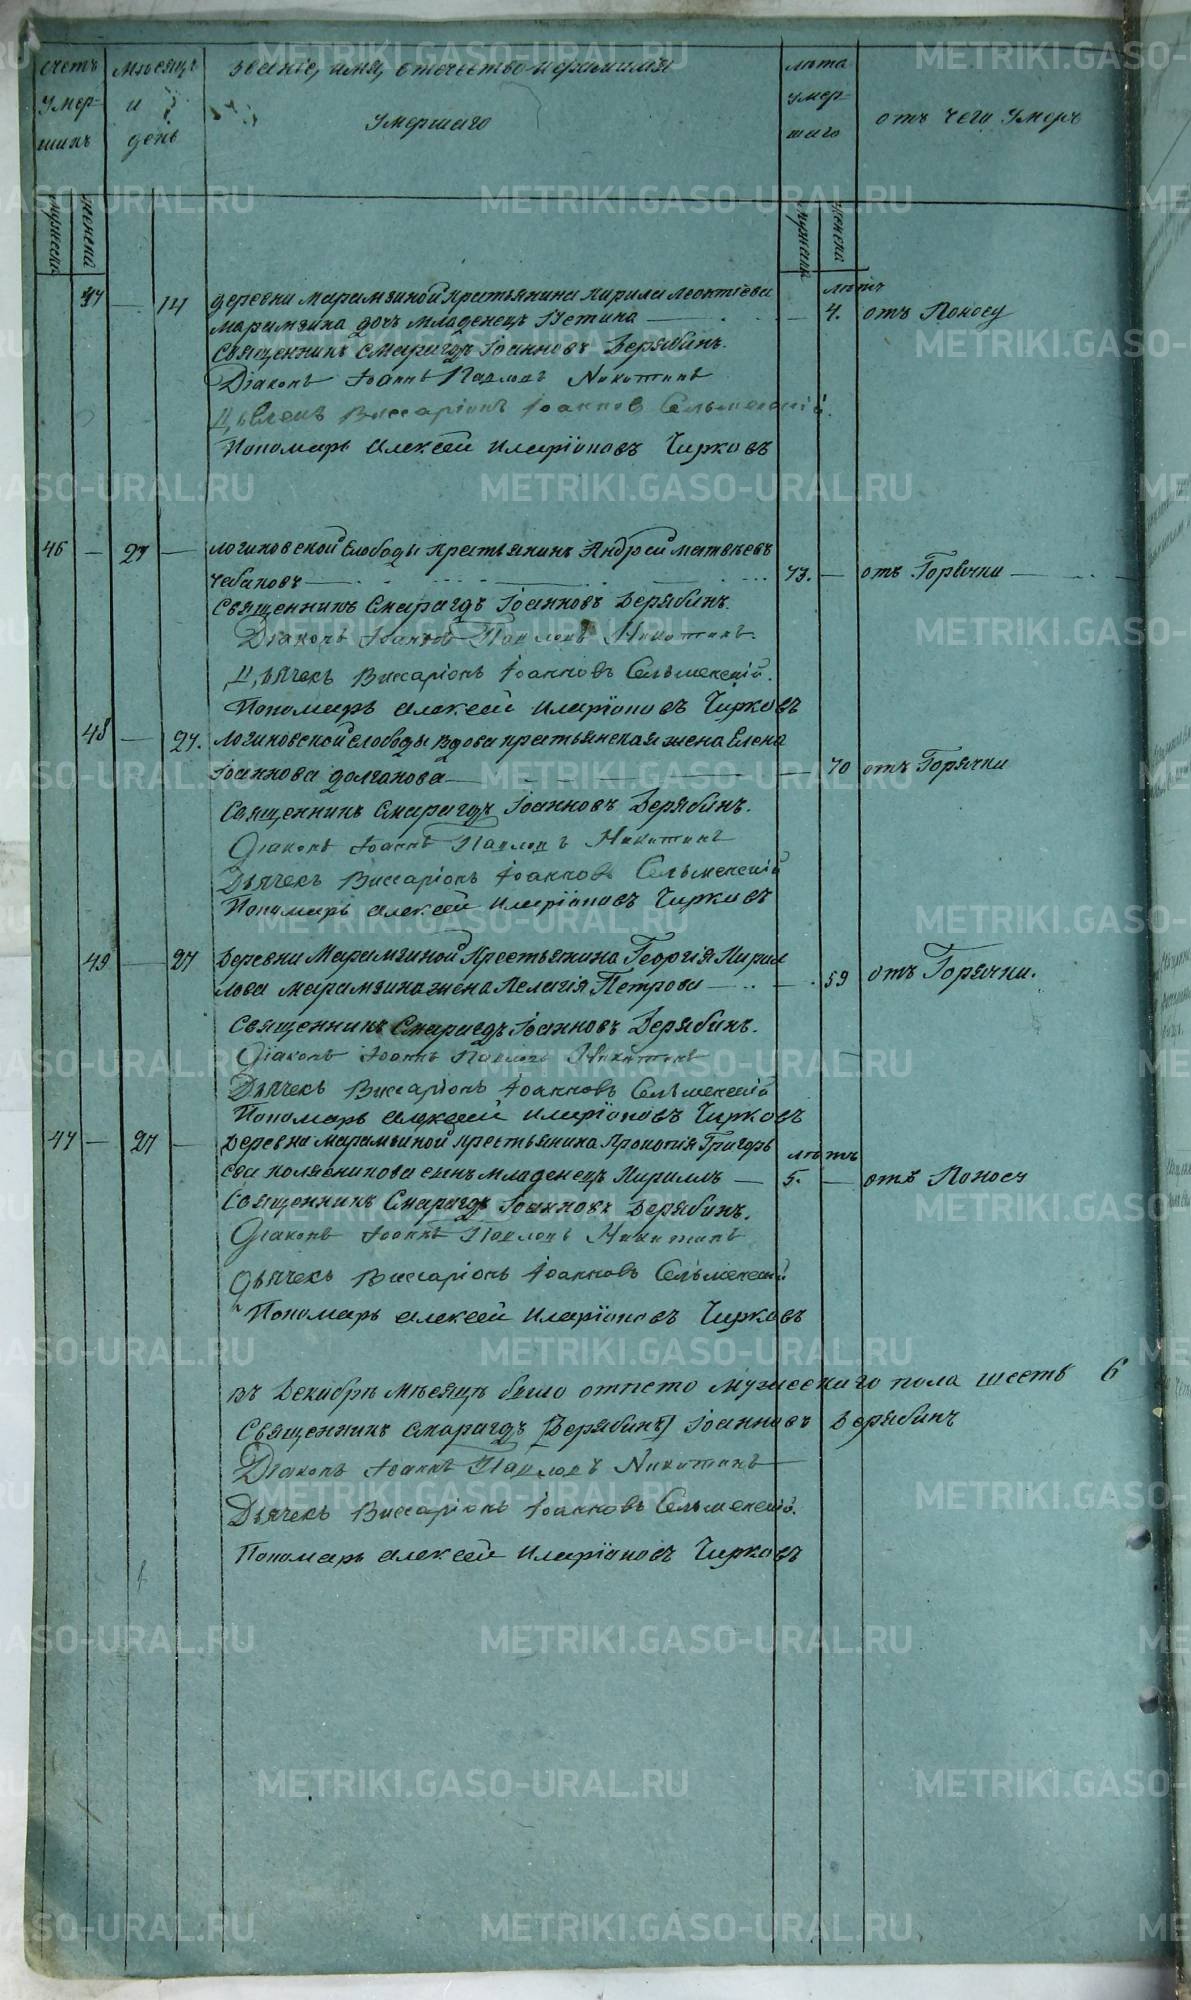 счетъ умершихъ
мѣсяцъ и день
званіе, имя, отечество и фамилия умершаго
лѣта умершаго
отъ чего умеръ
мужеска
женска
мужеска
женска
47 — 14 деревни Марамзиной крестьянина Кирила Леонтіева лѣтъ
Марамзина дочь младенецъ — 4. отъ Поносу
Священникъ Смарагдъ Іоанновъ Дерябинъ.
Діаконъ Іоаннъ Павловъ Никитинъ
Дьячекъ Виссаріонъ Іоанновъ Сельменскій.
Пономарь Алексей Иларіоновъ Чирковъ
46 — 27 — Логиновской Слободы крестьянинъ Андрей Матвѣевъ
Чебаковъ — 73. — отъ Горячки —
Священникъ Смарагдъ Іоанновъ Дерябинъ.
Діаконъ Іоаннъ Павловъ Никитинъ.
Дьячекъ Виссаріонъ Іоанновъ Сельменскій.
Пономарь Алексей Иларіоновъ Чирковъ
48 — 27. Логиновской слободы вдова крестьянская жена Елена
Іоаннова Долганова — 70 отъ Горячки
Священникъ Смарагдъ Іоанновъ Дерябинъ.
Діаконъ Іоаннъ Павловъ Никитинъ
Дьячекъ Виссаріонъ Іоанновъ Сельменскій
Пономарь Алексей Иларіоновъ Чирковъ
49 — 27 Деревни Марамзиной Крестьянина Георгія Кирил
лова Марамзина жена Пелагія Петрова — 59 отъ Горячки.
Священникъ Смарагдъ Іоанновъ Дерябинъ.
Діаконъ Іоаннъ Павловъ Никитинъ
Дьячекъ Виссаріонъ Іоанновъ Сельменскій
Пономарь Алексей Иларіоновъ Чирковъ
47 — 27 — Деревни Марамзиной крестьянина Прокопія Григорь лѣтъ
ева Колясникова сынъ младенецъ Кириллъ — 5. — отъ Поносу
Священникъ Смарагдъ Іоанновъ Дерябинъ.
Діаконъ Іоаннъ Павловъ Никитинъ
Дьячекъ Виссаріонъ Іоанновъ Сельменскій
Пономарь Алексей Иларіоновъ Чирковъ
въ Декабрѣ мѣсяцѣ было отпето мужескаго пола шесть 6
Священникъ Смарагдъ [Дерябинъ] Іоанновъ Дерябинъ
Діаконъ Іоаннъ Павловъ Никитинъ
Дьячекъ Виссаріонъ Іоанновъ Сельменскій.
Пономарь Алексей Иларіоновъ Чирковъ
METRIKI.GASO-URAL.RU